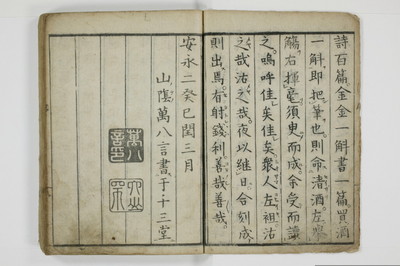 詩百篇金金一斛書一篇買酒
一斛即把筆也則命渚酒左擧
觴右揮毫須臾而成余受而讀
之嗚呼佳矣佳矣衆人左袒沽
之哉沽之哉夜以継日合刻成
則出馬有射錢利善哉善哉
安永二癸巳閏三月
山陰萬八言書于十三堂
萬八